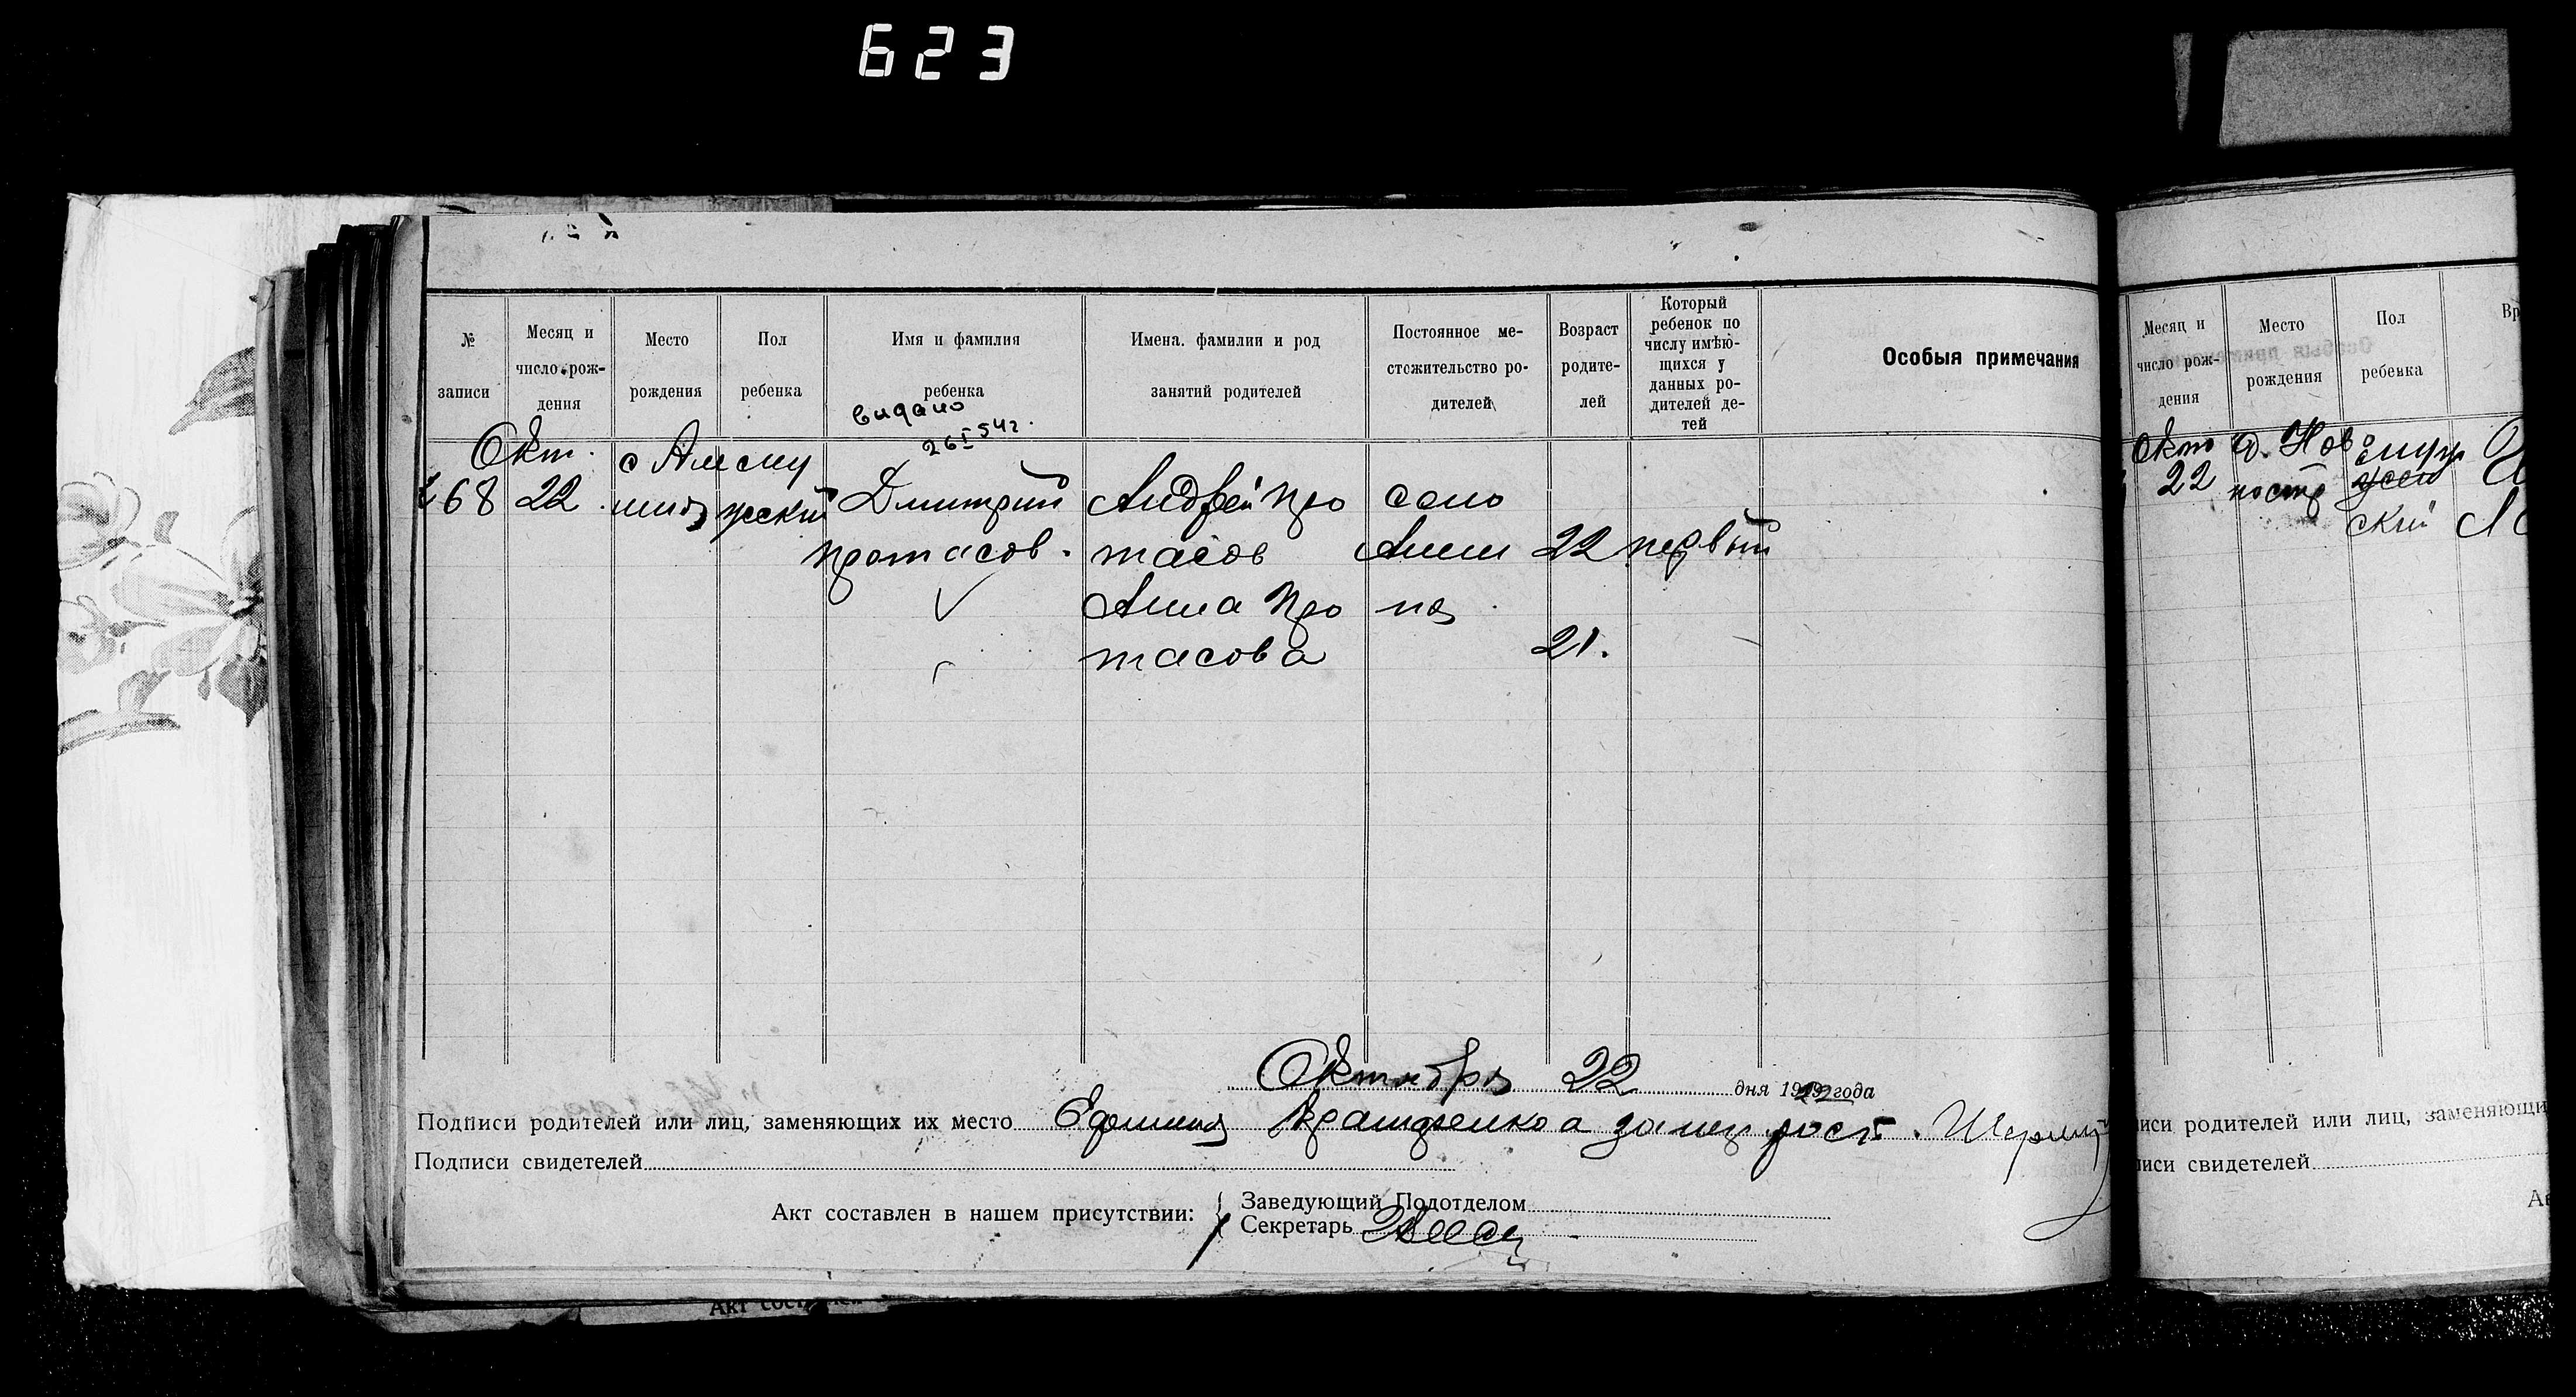 623
№ записи
Месяц и число рождения
Место рождения
Пол ребенка
Имя и фамилия ребенка
Имена. фамилии и род занятий родителей
Постоянное местожительство родителей
Возраст родителей
Который ребенок по числу имѣющихся у данных родителей детей
Особыя примечания
видано
26 I 54г.
Окт.
68 22
мужский
Дмитрий
протасов.
Андрей Про
тасов
Анна Про
тасова
село
22 первый
21.
Октября 22 дня 1922 года
Подписи родителей или лиц, заменяющих их место
Подписи свидетелей
Акт составлен в нашем присутствии:
Заведующий Подотделом
Секретарь
Месяц и число рождения
Место рождения
Пол ребенка
Вр
Окт
22
д. Нов
ский
иси родителей или лиц, заменяющи
иси свидетелей